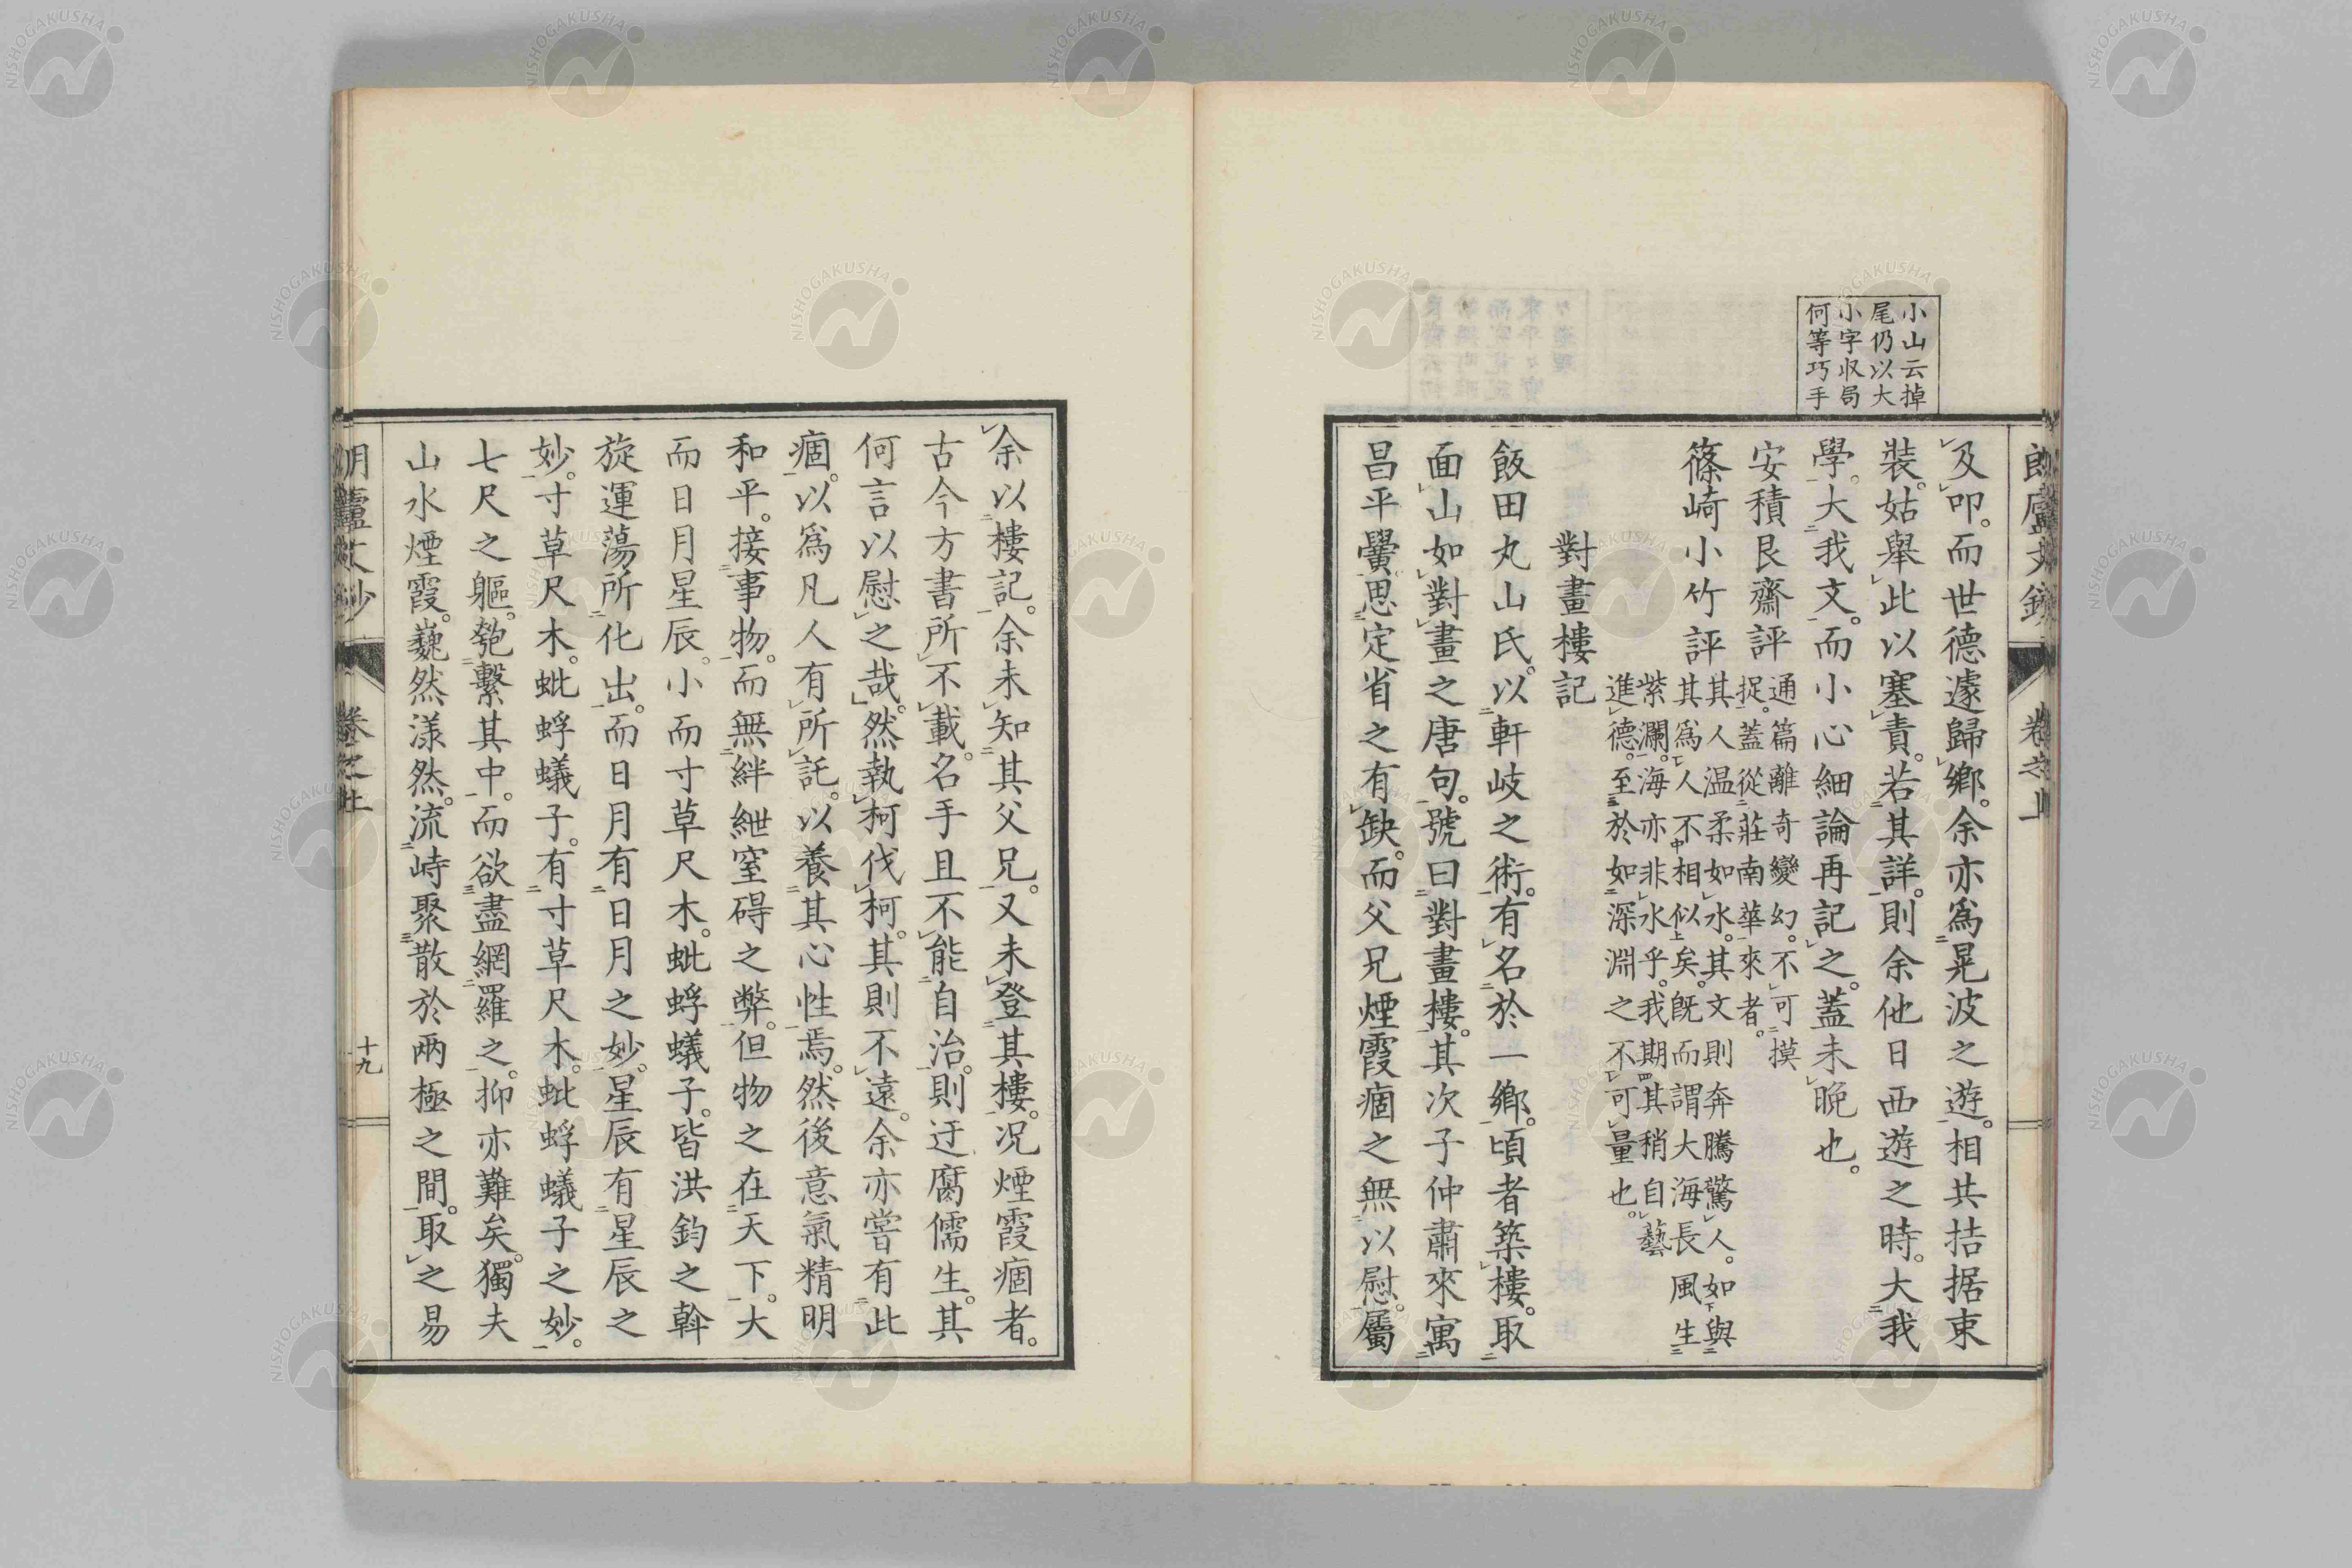 小山云掉
尾仍以大
小字収局
何等巧手
及叩。而世德遽歸鄉。余亦爲晃波之遊。相共拮据束
裝。姑舉此以塞責。若其詳。則余他日西遊之時。大我
學。大我文。而小心細論再記之。蓋未晚也。
安積艮齋評
通篇離奇變幻。不可摸
捉。蓋從莊南華來者。
篠崎小竹評
其人温柔如水。其文則奔騰驚人。如與
其爲人不相似矣。既而謂大海長風生
紫瀾。海亦非水乎。我期其稍自藝
進德。至於如深淵之不可量也。
對畫樓記
飯田丸山氏。以軒岐之術。有名於一鄉。頃者築樓。取
面山如對畫之唐句。號曰對畫樓。其次子仲肅來寓
昌平黌。思定省之有缺。而父兄煙霞痼之無以慰。屬
余以樓記。余未知其父兄。又未登其樓。况煙霞痼者。
古今方書所不載。名手且不能自治。則迂腐儒生。其
何言以慰之哉。然執柯伐柯。其則不遠。余亦嘗有此
痼。以爲凡人有所託。以養其心性焉。然後意氣精明
和平。接事物。而無絆紲窒碍之弊。但物之在天下。大
而日月星辰。小而寸草尺木。蚍蜉蟻子。皆洪鈞之斡
旋運蕩所化出。而日月有日月之妙。星辰有星辰之
妙。寸草尺木。蚍蜉蟻子。有寸草尺木。蚍蜉蟻子之妙。
七尺之軀。匏繫其中。而欲盡網羅之。抑亦難矣。獨夫
山水煙霞。巍然漾然。流峙聚散於兩極之間。取之易
卷之上
十九